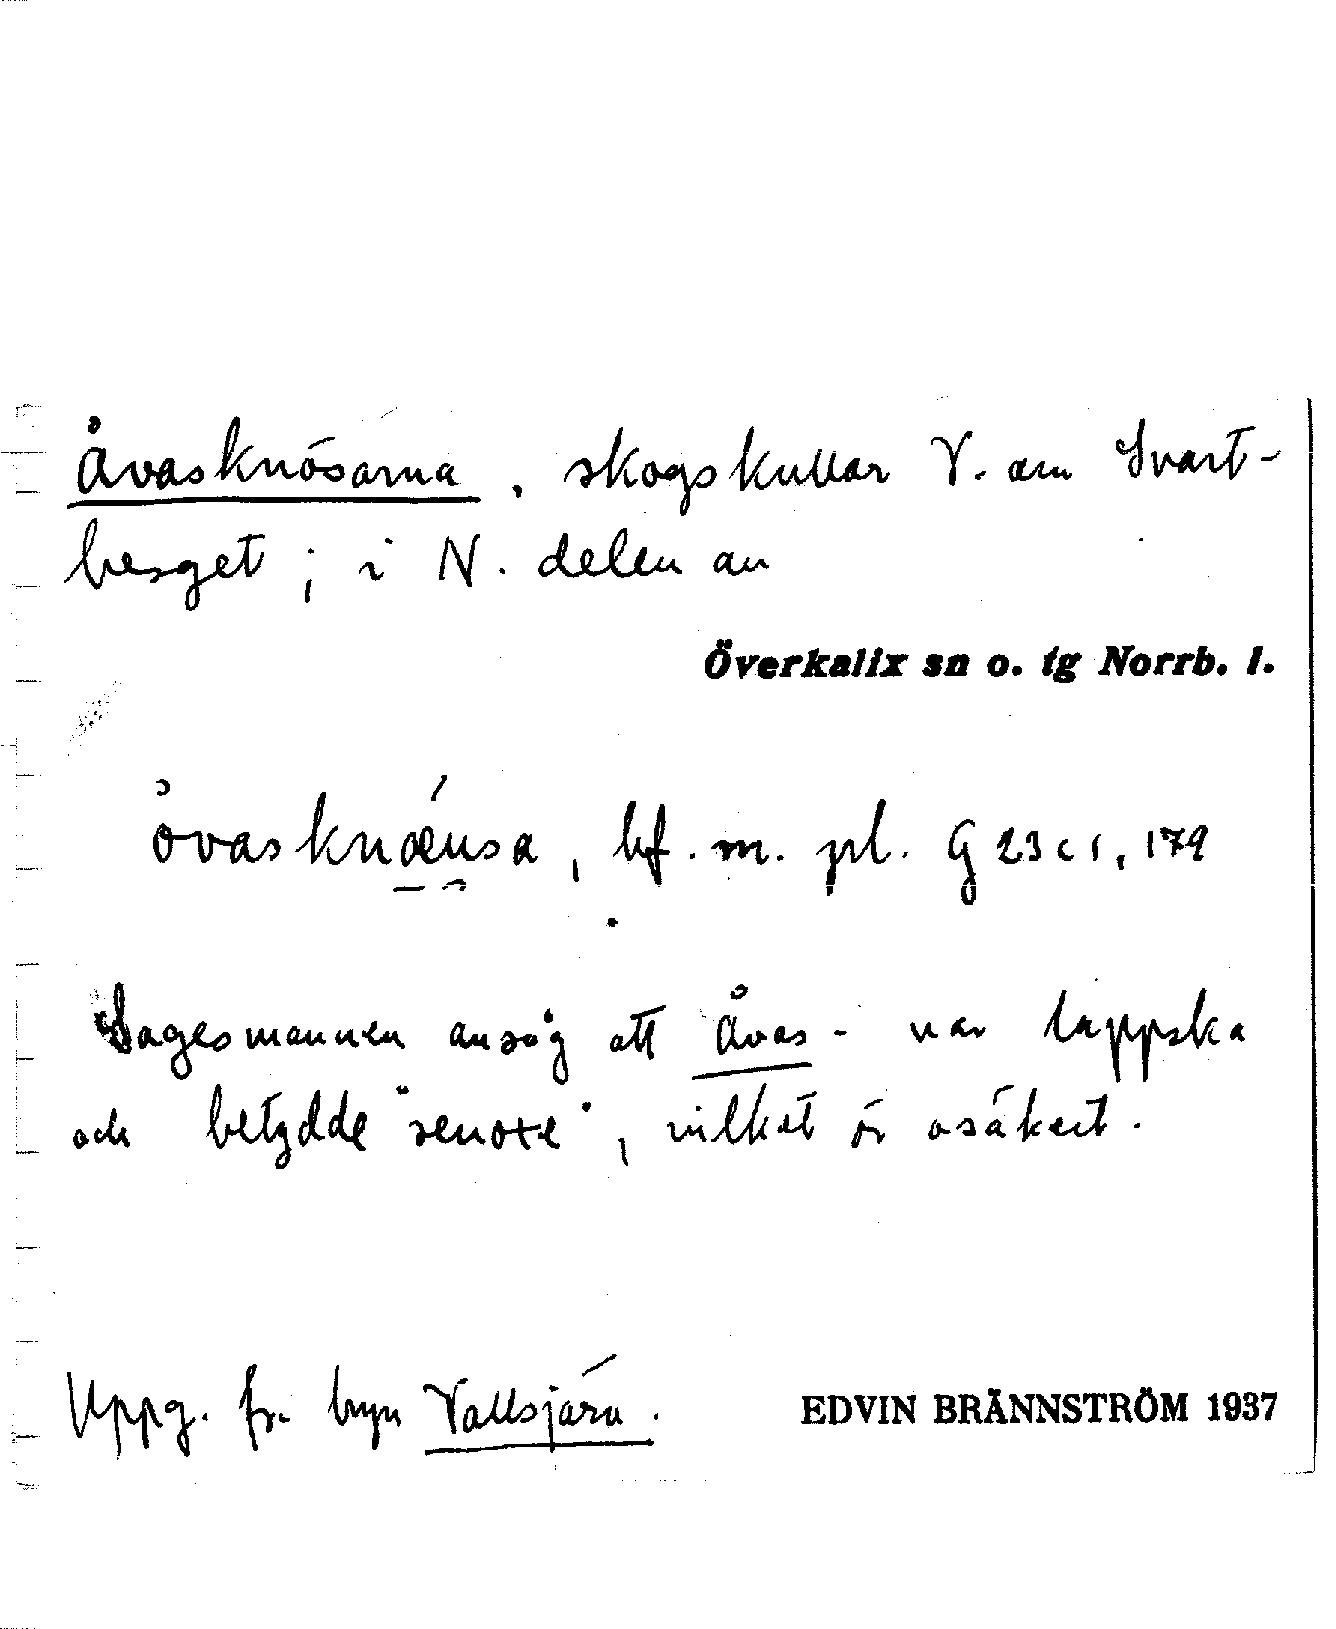 Åvasknösarna, skogskullar V. om Svart-
berget; i N. delen av
Överkalix sn o. tg Norrb. l.
åvasknǽusa, bf. m. pl. G 23 c 1, 179
Sagesmannen ansåg att Åvas- var lappska
och betydde "senore", vilket är osäkert.
Uppg. fr. byn Vallsjärv.
EDVIN BRÄNNSTRÖM 1937